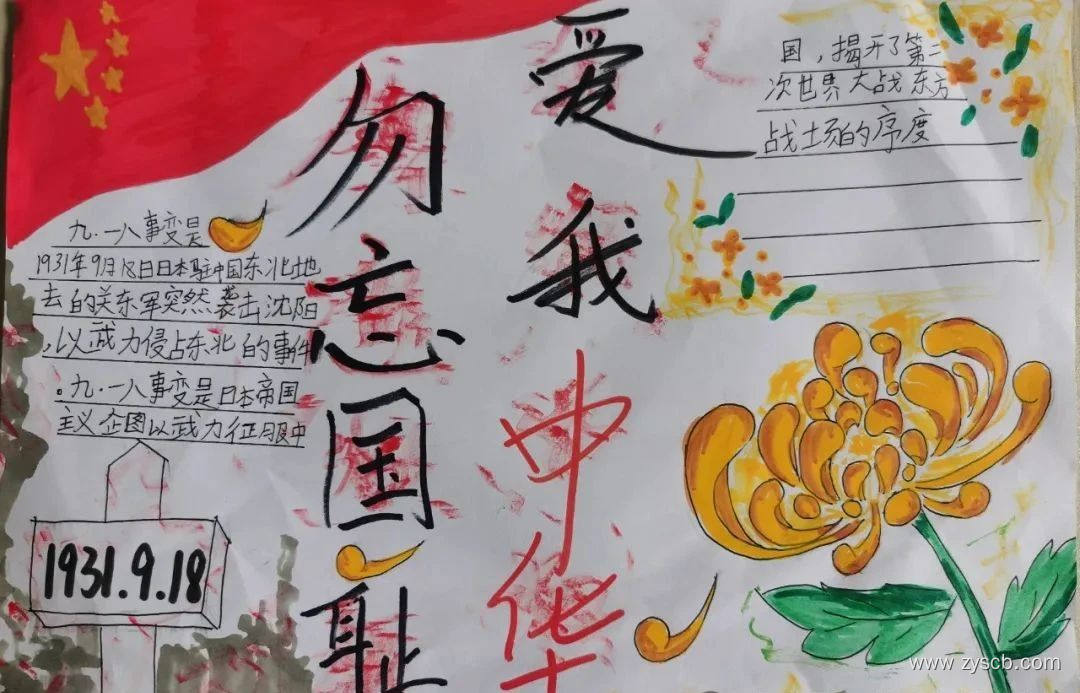 勿忘国耻
爱我中华
九·一八事变是
1931年9月18日日本驻中国东北地
去的关东军突然袭击沈阳
,以武力侵占东北的事件
。九·一八事变是日本帝国
主义企图以武力征服中
国，揭开了第二
次世界大战东方
战场的序度
1931.9.18
www.zyscb.com